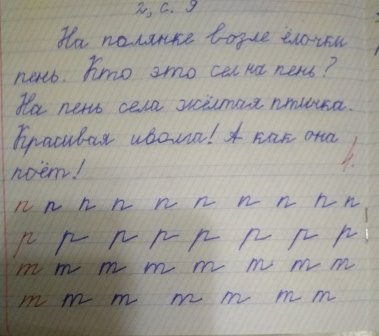 2, с. 9
На полянке возле ёлочки
пень. Кто это сел на пень?
На пень села жёлтая птичка.
Красивая иволга! А как она
поёт!
4.
п п п п п п п п п п
р р р р р р р р
т т т т т т т т
т т т т т т т